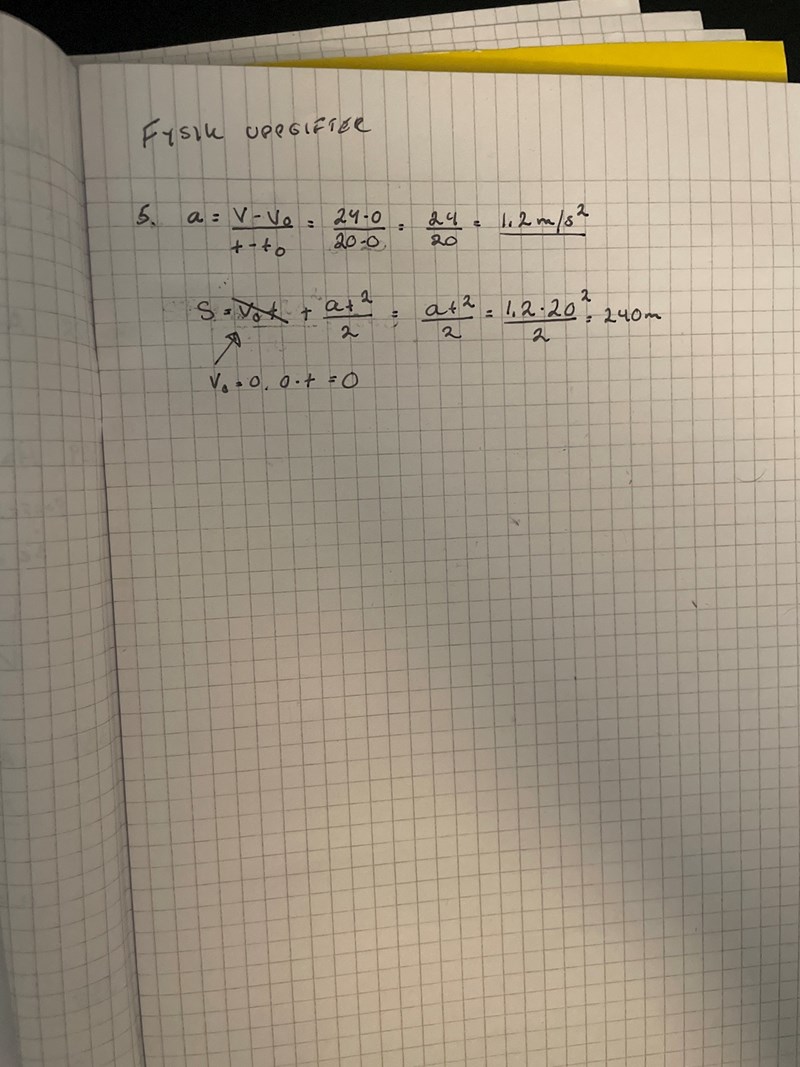 Fysik uppgifter
5. a = (v - v₀)/(t - t₀) = (24-0)/(20-0) = 24/20 = 1,2 m/s²
s = v₀t + at²/2 = at²/2 = 1,2·20²/2 = 240m
v₀ = 0, 0·t = 0